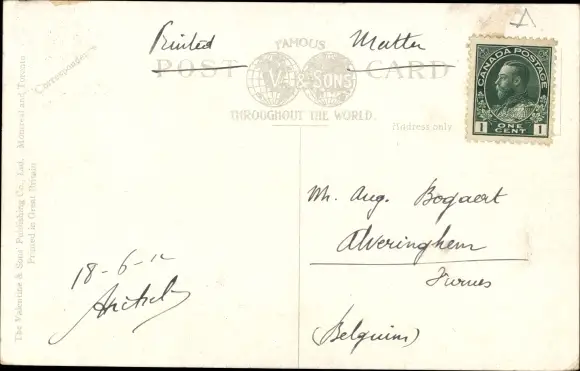 Printed Matter
FAMOUS
POST CARD
V. & SONS
THROUGHOUT THE WORLD.
Correspondence
Address only
CANADA POSTAGE
1 ONE CENT 1
Mr. Aug. Bogaert
Alveringhem
Furnes
(Belguim)
18-6-12
The Valentine & Sons' Publishing Co., Ltd. Montreal and Toronto
Printed in Great Britain